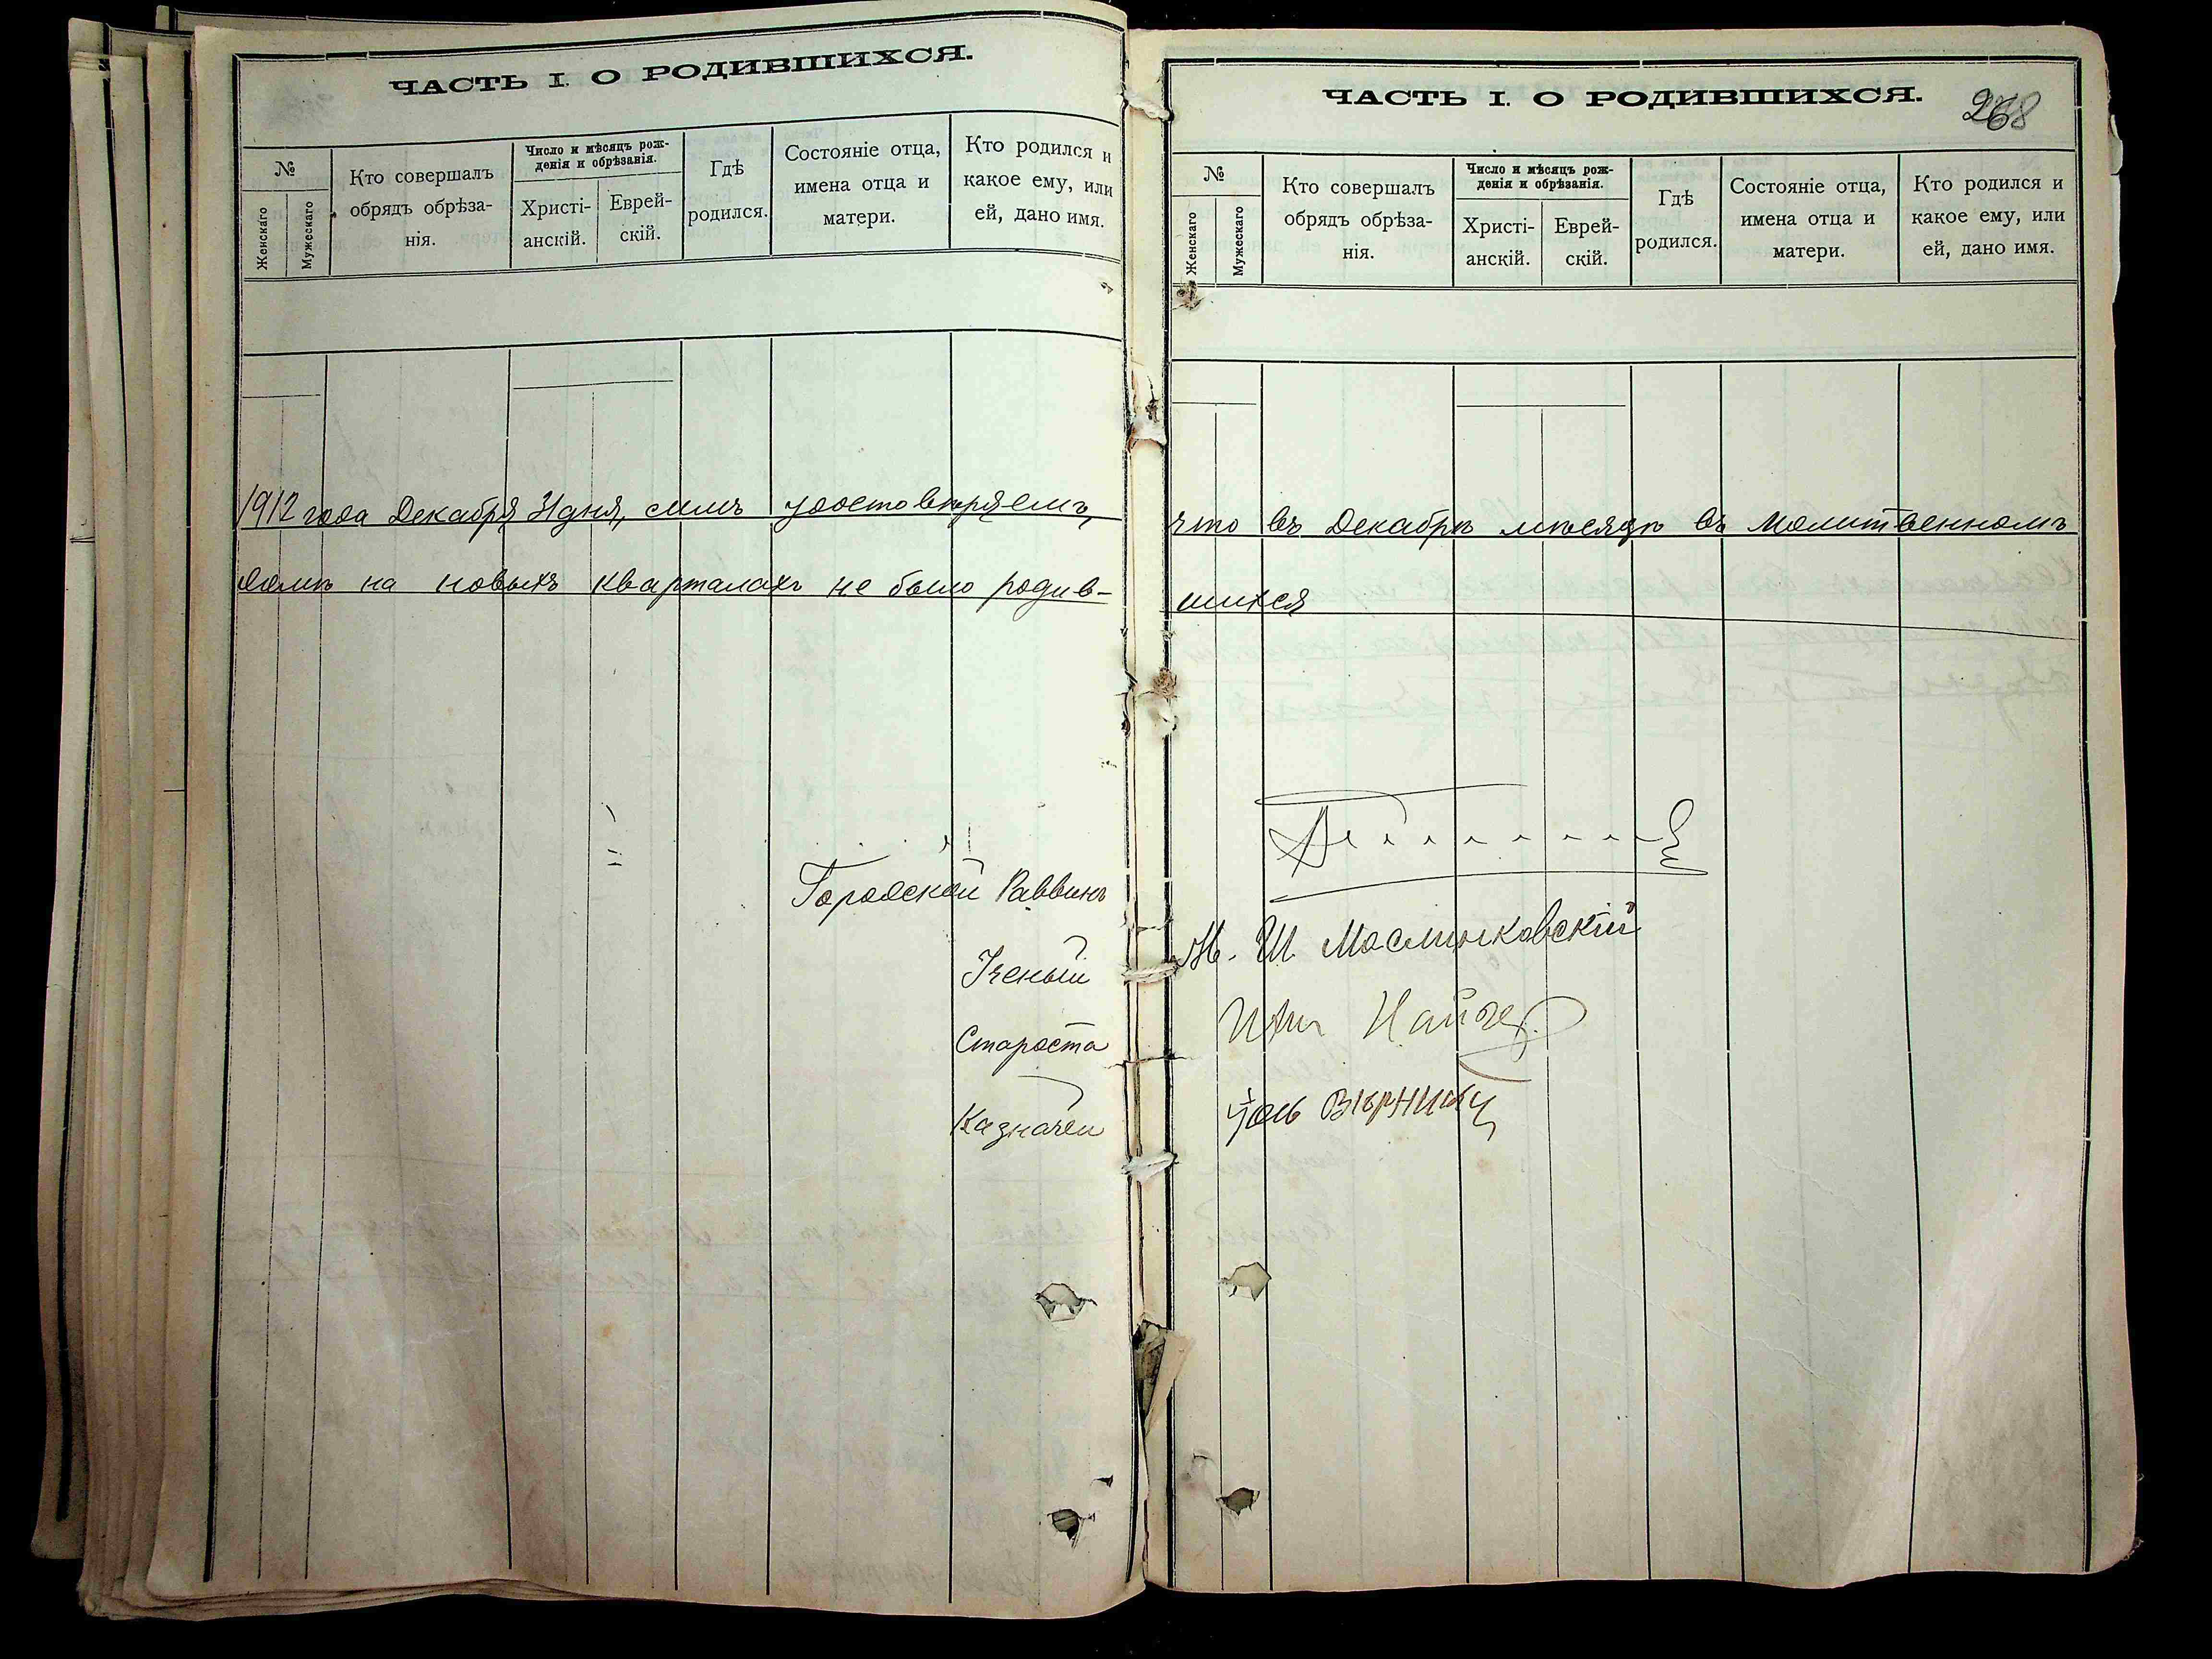 ЧАСТЬ I. О РОДИВШИХСЯ.
№
Женскаго
Мужескаго
Кто совершалъ
обрядъ обрѣза-
нія.
Число и мѣсяцъ рож-
денія и обрѣзанія.
Христі-
анскій.
Еврей-
скій.
Гдѣ
родился.
Состояніе отца,
имена отца и
матери.
Кто родился и
какое ему, или
ей, дано имя.
1912 года Декабря 31 дня, симъ удостовѣряемъ,
домѣ на новыхъ кварталахъ не было родив-
Городской Раввинъ
Ученый
Староста
Казначей
ЧАСТЬ I. О РОДИВШИХСЯ.
268
№
Женскаго
Мужескаго
Кто совершалъ
обрядъ обрѣза-
нія.
Число и мѣсяцъ рож-
денія и обрѣзанія.
Христі-
анскій.
Еврей-
скій.
Гдѣ
родился.
Состояніе отца,
имена отца и
матери.
Кто родился и
какое ему, или
ей, дано имя.
что въ Декабрѣ мѣсяцѣ въ Молитвенномъ
шихся
М. Ш. Маслинковскій